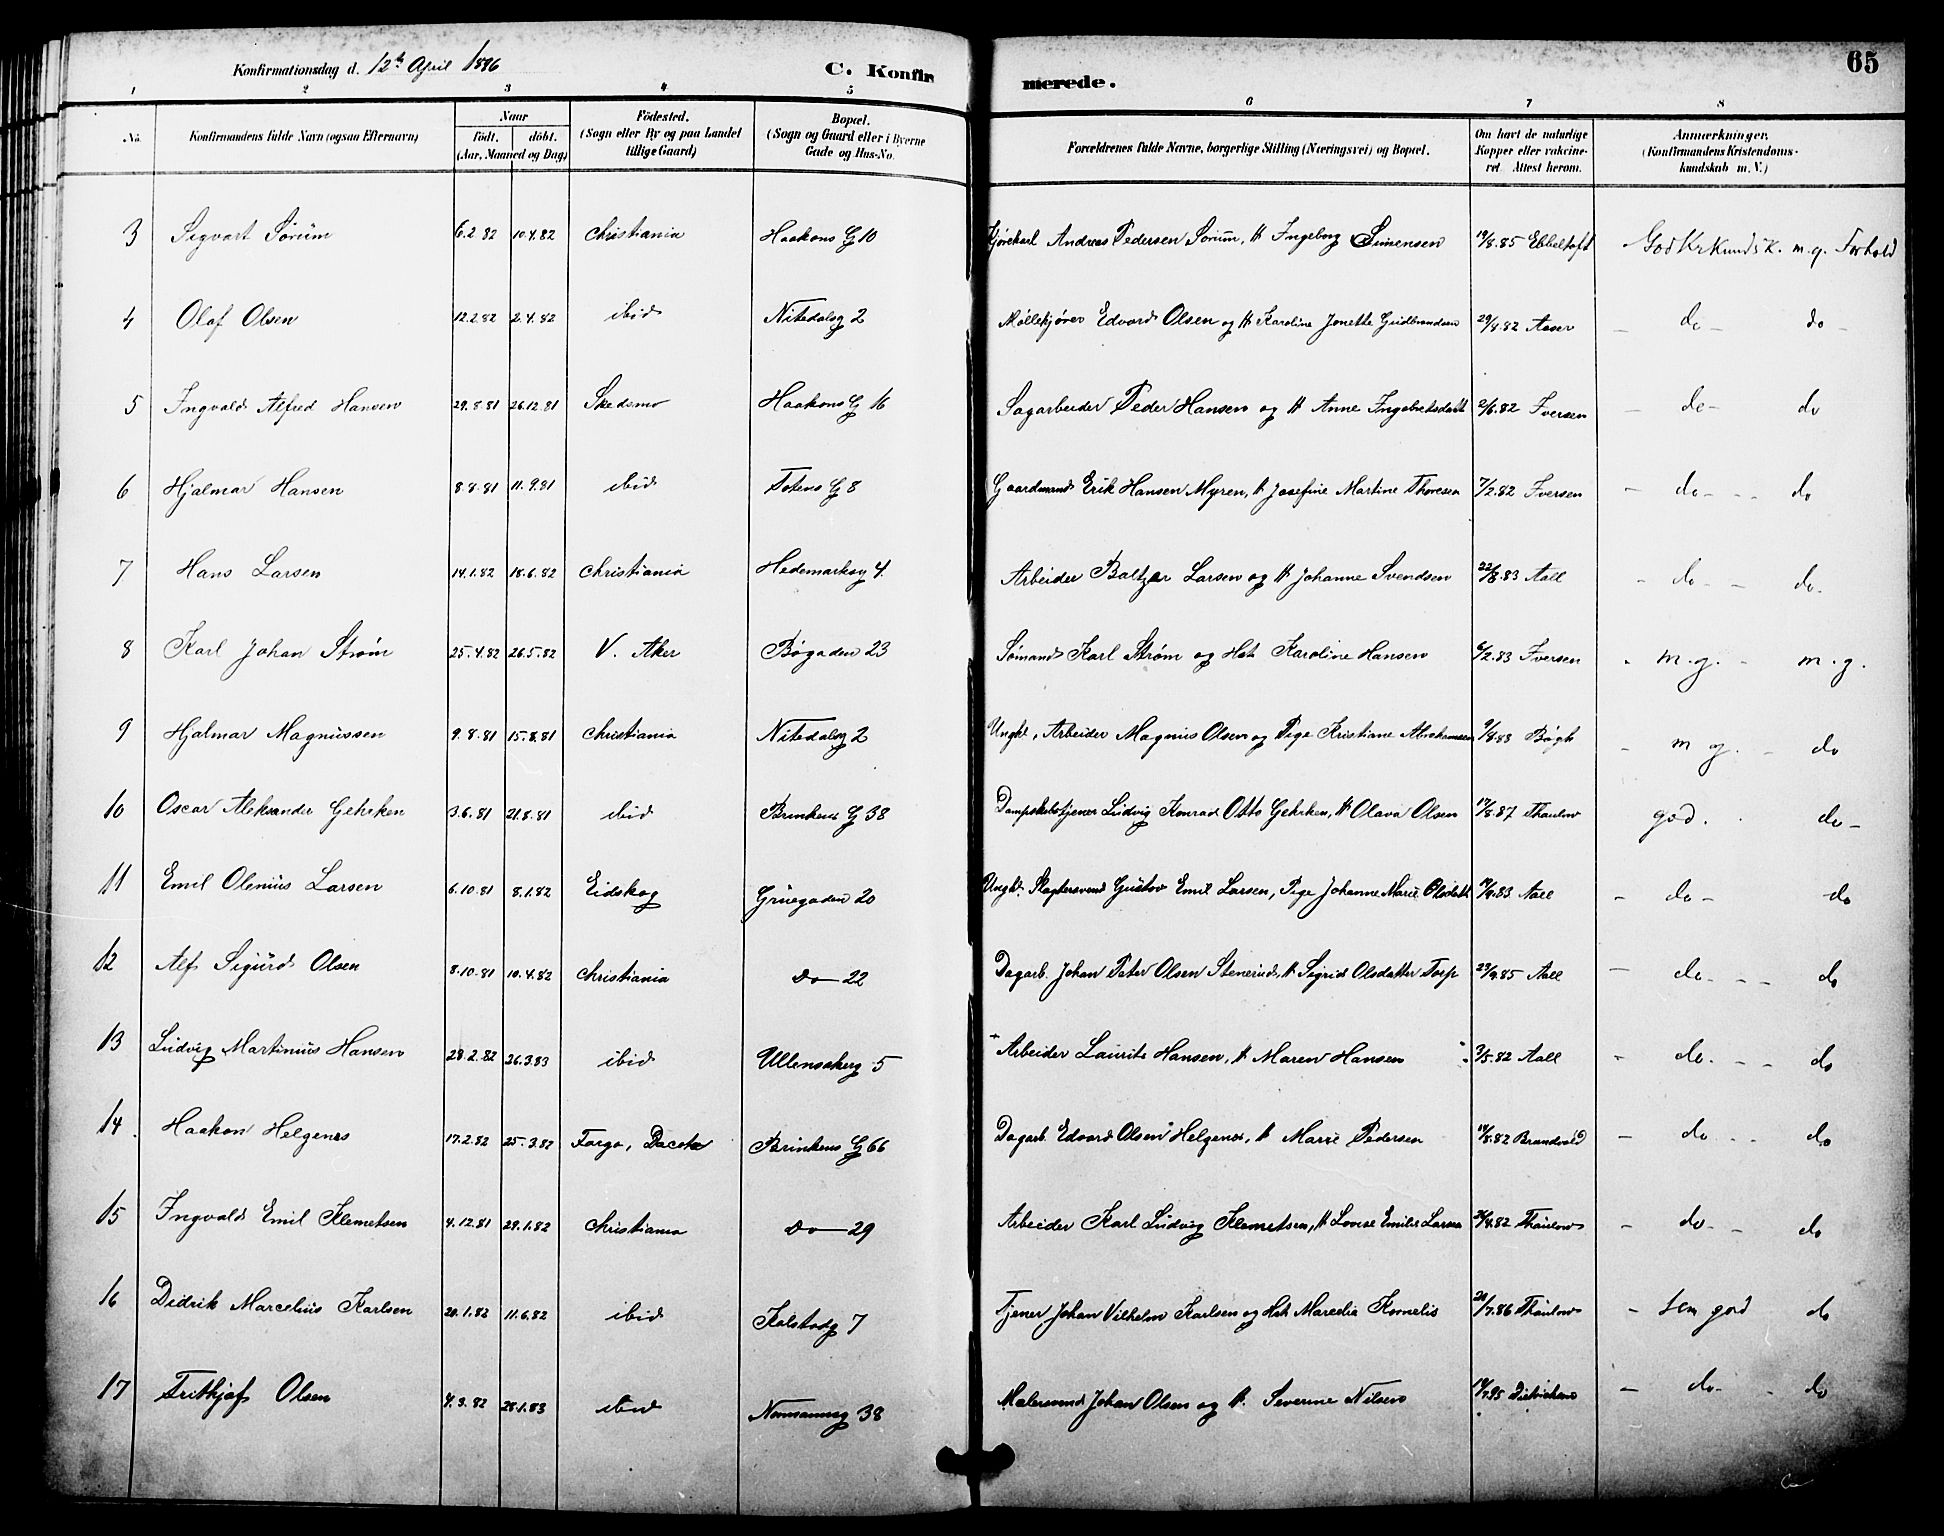 Konfirmationsdag d. 12te April 1896 C. Konfir merede. 65
1 2 3 4 5 6 7 8
No. Konfirmandens fulde Navn (ogsaa Efternavn) Naar født. døbt. (Aar, Maaned og Dag) Fødested. (Sogn eller By og paa Landet tillige Gaard) Bopæl. (Sogn og Gaard eller i Byerne Gade og Hus-No. Forældrenes fulde Navne, borgerlige Stilling (Næringsvei) og Bopæl. Om havt de naturlige Kopper eller vakcineret. Attest herom. Anmærkninger. (Konfirmandens Kristendomskundskab m. V.)
3 Sigvart Sörum 6.2 82 10.4.82 Christiania Haakons G 10 Kjörekarl Andreas Pedersen Sörum, H Ingeborg Simensen 19/8.85 Ebbeltoft God Kr Kundsk. m.g. Forhold
4 Olaf Olsen 12.2.82 2.4.82 ibid Nitedalsg 2 Møllekjører Edvard Olsen og H Karoline Jonette Gudbrandsen 29/4.82 Aaser - do - do -
5 Ingvald Alfred Hansen 29.8.81 26.12.81 Skedsmo Haakons G 16 Sagarbeider Peder Hansen og H Anne Ingebretsdatt 2/6.82 Iversen - do - do
6 Hjalmar Hansen 8.8.81 11.9.81 ibid Totens G 8 Gaardmand Erik Hansen Myren, H Josefine Martine Thoresen 7/2.82 Iversen - do - - do
7 Hans Larsen 14.1.82 18.6.82 Christiania Hedemarksg 4. Arbeider Baltzer Larsen og H Johanne Svendsen 22/8.83 Aall - do - - do.
8 Karl Johan Strøm 25.4.82 26.5.82 V. Aker Bøgaden 23 Sømand Karl Strøm og Hst Karoline Hansen 6/2.83 Iversen - m.g. - m.g.
9 Hjalmar Magnussen 9.8.81 15.8.81 Christiania Nitedalsg 2 Ungkl, Arbeider Magnus Olsen og Pige Kristiane Abrahamsen 9/8.83 Bøgh - m g. - do
10 Oscar Aleksander Gehrken 3.6.81 21.8.81 ibid Brinkens G 38 Dampskibstjener Ludvig Konrad Otto Gehrken, H Olava Olsen 17/8.87 Thaulow god. do -
11 Emil Olenius Larsen 6.10.81 8.1.82 Eidskog Grüegaden 20 Ungkl. Slagtersvend Gustav Emil Larsen, Pige Johanne Marie Olsdatt 83 Aall - do - do
12 Alf Sigurd Olsen 8.10.81 10.4.82 Christiania Do — 22 Dagarb. Johan Peter Olsen Stenerud, H Sigrid Olsdatter Torp 29/9.85 Aall - do - - - do
13 Ludvig Martinius Hansen 28.2.82 26.3.83 ibid Ullensakerg 5 Arbeider Laurits Hansen, H Maren Hansen 3/5.82 Aall - do. - - do
14 Haakon Helgenes 17.2.82 25.3.82 Fargo, Dacota Brinkens G 66 Dagarb. Edvard Olsen Helgenes, H Marie Pedersen 11/8.82 Brandvold - do - - do
15 Ingvald Emil Klemetsen 4.12.81 29.1.82 Christiania Do — 29 Arbeider Karl Ludvig Klemetsen, H Lovise Emilie Larsen 26/4.82 Thaulow - do - - do
16 Didrik Marcelius Karlsen 20.1.82 11.6.82 ibid Kalstadg 7 Tjener Johan Vilhelm Karlsen og Hst Marcelia Kornelis 20/7.86 Thaulow - tem god do
17 Frithjof Olsen 4.3.82 28.1.83 ibid Normannsg 38 Malersvend Johan Olsen og H. Severine Nilsen 95 - do - - do